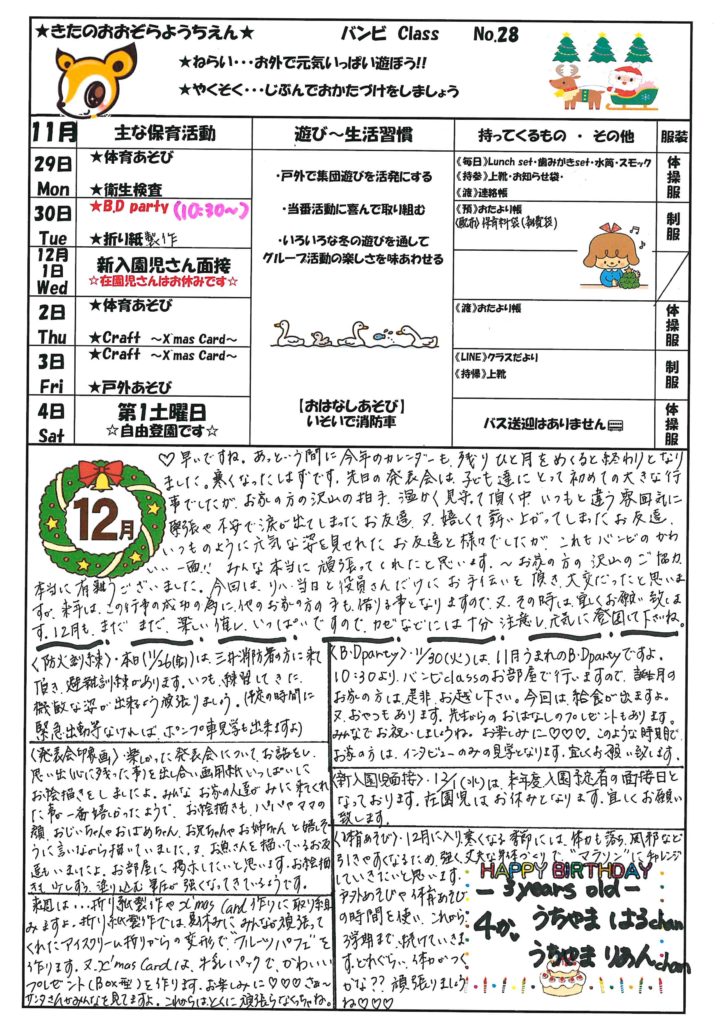 ★きたのおおぞらようちえん★ バンビ Class No.28
★ねらい・・・お外で元気いっぱい遊ぼう!!
★やくそく・・・じぶんでおかたづけをしましょう
11月 主な保育活動 遊び～生活習慣 持ってくるもの ・ その他 服装
29日 Mon
★体育あそび
★衛生検査
・戸外で集団遊びを活発にする
・当番活動に喜んで取り組む
・いろいろな冬の遊びを通して
グループ活動の楽しさを味あわせる
《毎日》Lunch set・歯みがきset・水筒・スモック
《持参》上靴・お知らせ袋・
《渡》連絡帳
体操服
30日 Tue
★B,D party (10:30～)
★折り紙製作
《預》おたより帳
制服
12月1日 Wed
新入園児さん面接
☆在園児さんはお休みです☆
2日 Thu
★体育あそび
★Craft ～X'mas Card～
《渡》おたより帳
体操服
3日 Fri
★Craft ～X'mas Card～
★戸外あそび
《LINE》クラスだより
《持帰》上靴
制服
4日 Sat
第1土曜日
☆自由登園です☆
【おはなしあそび】
いそいで消防車
バス送迎はありません
体操服
12月
♡早いですね。あっという間に今年のカレンダーも、残りひと月をめくると終わりとなり
ました。寒くなったはずです。先日の発表会は、子ども達にとって初めての大きな行
事でしたが、お家の方の沢山の拍手、温かく見守って頂く中、いつもと違う雰囲気に
緊張や不安で涙が出てしまったお友達、又、嬉しくて舞い上がってしまったお友達、
いつものように元気な姿を見せれたお友達と様々でしたが、これもバンビのかわ
いい一面!! みんな本当に頑張ってくれたと思います。～お家の方の沢山のご協力、
本当に有難うございました。今回は、リハ、当日と役員さんだけにお手伝いを頂き、大変だったと思いま
すが、来年は、この行事の成功の為に、他のお家の方の手も、借りる事となりますので、又、その時は、宜しくお願い致しま
す。12月も、まだまだ、楽しい催し、いっぱいですので、カゼなどには十分注意し、元気に登園して下さいね。
〈防火訓練〉・本日(11/26(金))は、三井消防署の方に来て
頂き、避難訓練があります。いつも、練習してきた、
機敏な姿が出来るよう頑張りましょう。(予定の時間に
緊急出動等なければ、ポンプ車見学も出来ますよ)
〈B・Dparty〉・11/30(火)は、11月うまれのB・Dpartyですよ。
10:30より、バンビclassのお部屋で行いますので、誕生月の
お家の方は、是非、お越し下さい。今回は、給食が出ますよ。
又、おやつもあります。先生からのおはなしのプレゼントもあります。
みんなでお祝いしましょうね。お楽しみに♡♡♡。このような時期で、
お家の方は、インタビューのみの見学となります。宜しくお願い致します。
〈発表会印象画〉・楽しかった発表会について、お話をし、
思い出(心に残った事)を出し合い、画用紙いっぱいに
お絵描きをしましたよ。みんな、お家の人達がみに来てくれ
た事が一番嬉しかったようで、お絵描きも、パパやママの
顔、おじいちゃんやおばあちゃん、お兄ちゃんやお姉ちゃんと嬉しそ
うに言いながら描いていました。又、お魚さんを描いているお友
達もいましたよ。お部屋に掲示したいと思います。お絵描
〈新入園児面接〉・12/1(水)は、来年度入園予定者の面接日と
なっております。在園児はお休みとなります。宜しくお願い
致します。
〈体育あそび〉・12月に入り、寒くなる季節には、体力も落ち、風邪など
引きやすくなるため、強く丈夫な身体づくりで"マラソン"にチャレンジ
していきたいと思います。
戸外あそびや体育あそび
の時間を使い、これから
3学期まで、続けていきま
す。どれぐらい、体力がつく
かな?? 頑張りましょう
ね♡♡♡
来週は...折り紙製作やX'mas Card作りに取り組
みますよ。折り紙製作では、夏休みにみんなが頑張って
くれたアイスクリーム折りからの変形で、"フルーツパフェ"を
作ります。又、X'mas Cardは、牛乳パックで、かわいい
プレゼント(Box型)を作ります。お楽しみに♡♡♡さぁ～
サンタさんがみんなを見てますよ。これからはとくに頑張らなくっちゃね。
HAPPY BIRTHDAY
-3 years old-
うちやま はるchan
うちやま りあんchan